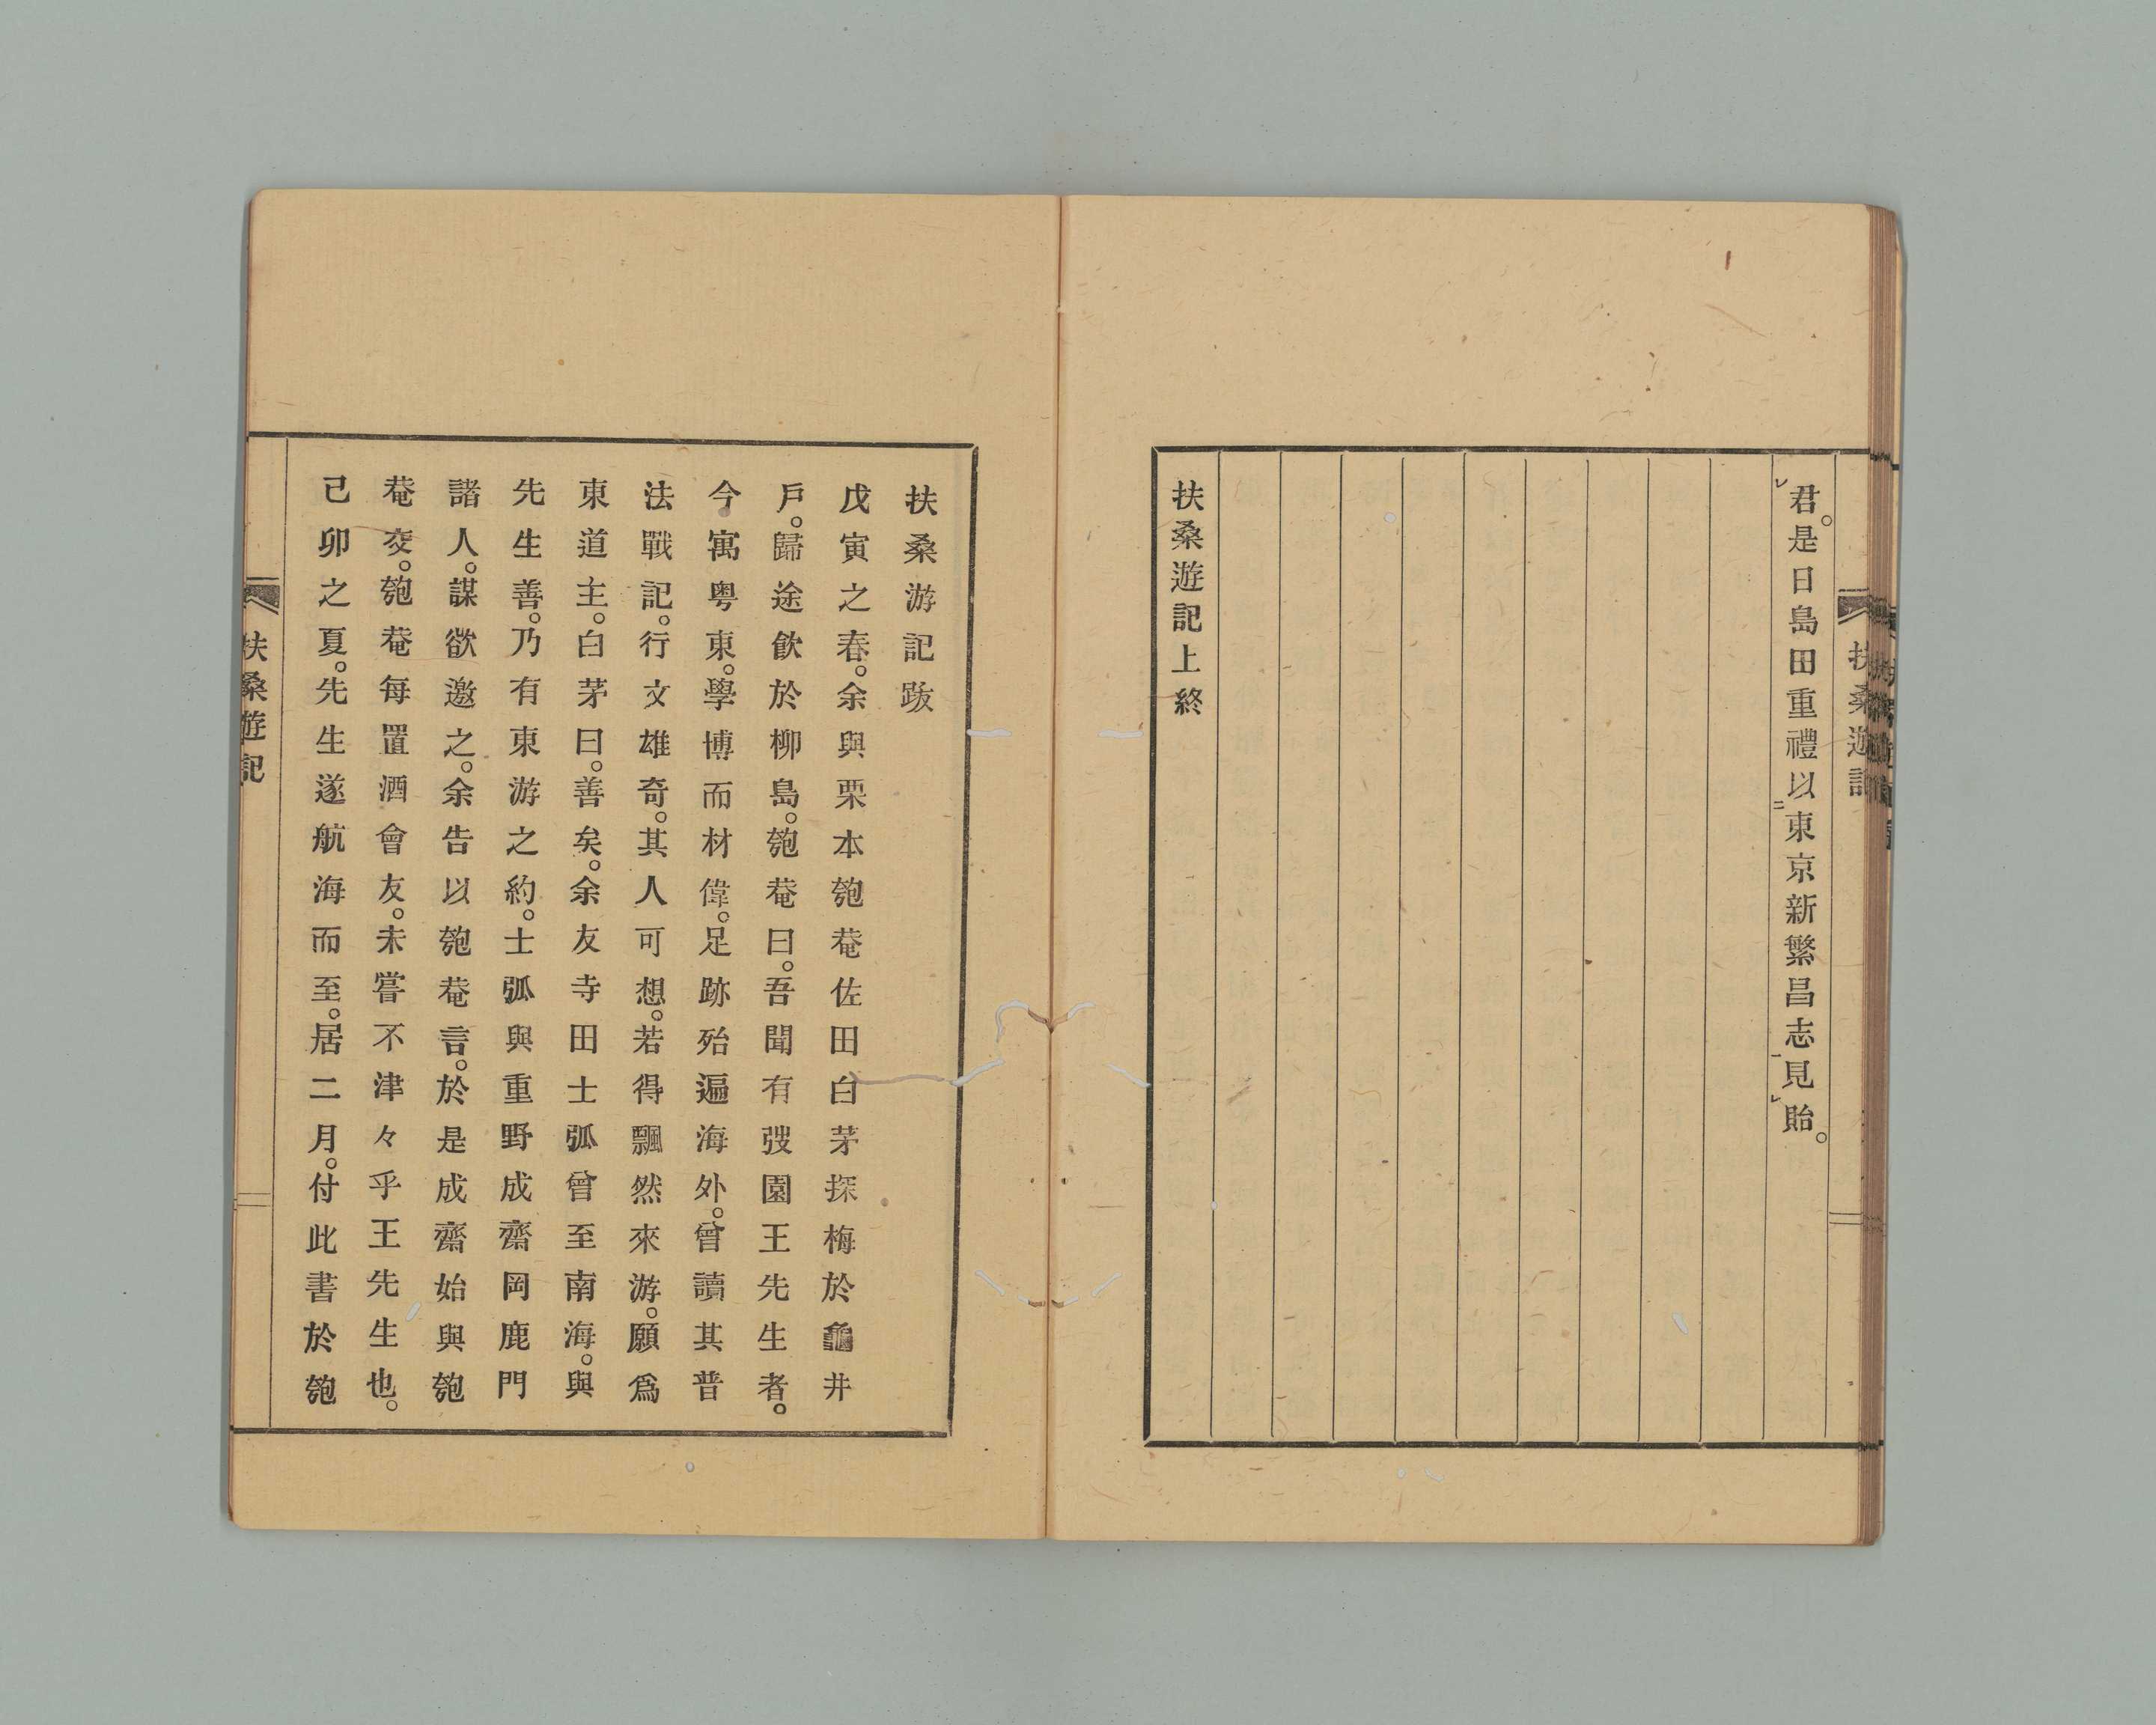 扶桑遊記
君。是日島田重禮以東京新繁昌志見貽。
扶桑遊記上終
扶桑游記跋
戊寅之春。余與栗本匏菴佐田白茅探梅於龜井
戶。歸途飮於柳島。匏菴曰。吾聞有弢園王先生者。
今寓粤東。學博而材偉。足跡殆遍海外。曾讀其普
法戰記。行文雄奇。其人可想。若得飄然來游。願爲
東道主。白茅曰。善矣。余友寺田士弧曾至南海。與
先生善。乃有東游之約。士弧與重野成齋岡鹿門
諸人。謀欲邀之。余告以匏菴言。於是成齋始與匏
菴交。匏菴每置酒會友。未嘗不津々乎王先生也。
己卯之夏。先生遂航海而至。居二月。付此書於匏
扶桑遊記